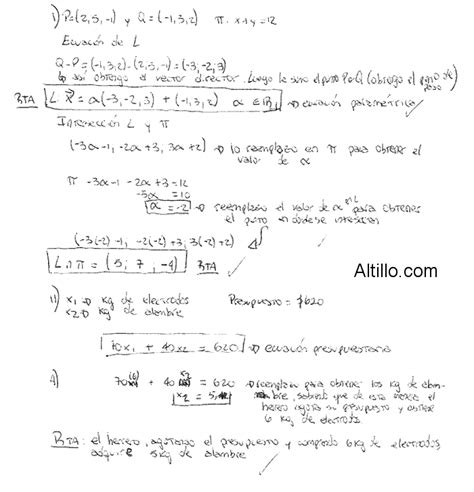 I) P=(2,5,-1) y Q=(-1,3,2) π: x+y=12
Ecuación de L
Q-P=(-1,3,2)-(2,5,-1)=(-3,-2,3)
así obtengo el vector director. Luego le sumo el punto P o Q (obtengo el punto de paso)
RTA L: X = α(-3,-2,3) + (-1,3,2) α ∈ R → ecuación paramétrica
Intersección L y π
(-3α-1, -2α+3, 3α+2) → lo reemplazo en π para obtener el
valor de α
π -3α-1 -2α+3=12
-5α =10
α=-2 → reemplazo el valor de α para obtener
el punto en donde se intersecan
(-3(-2)-1; -2(-2)+3; 3(-2)+2)
L∩π = (5; 7; -4) RTA
Altillo.com
II) x1 → kg de electrodos Presupuesto = $620
x2 → kg de alambre
70x1 + 40x2 = 620 → ecuación presupuestaria
A) 70(6) + 40x2 = 620 → reemplazo para obtener los kg de alam-
x2 = 5 bre, sabiendo que de esta manera el
herrero agota su presupuesto y obtiene
6 kg de electrodos.
RTA: el herrero, agotando el presupuesto y comprando 6kg de electrodos,
adquiere 5kg de alambre